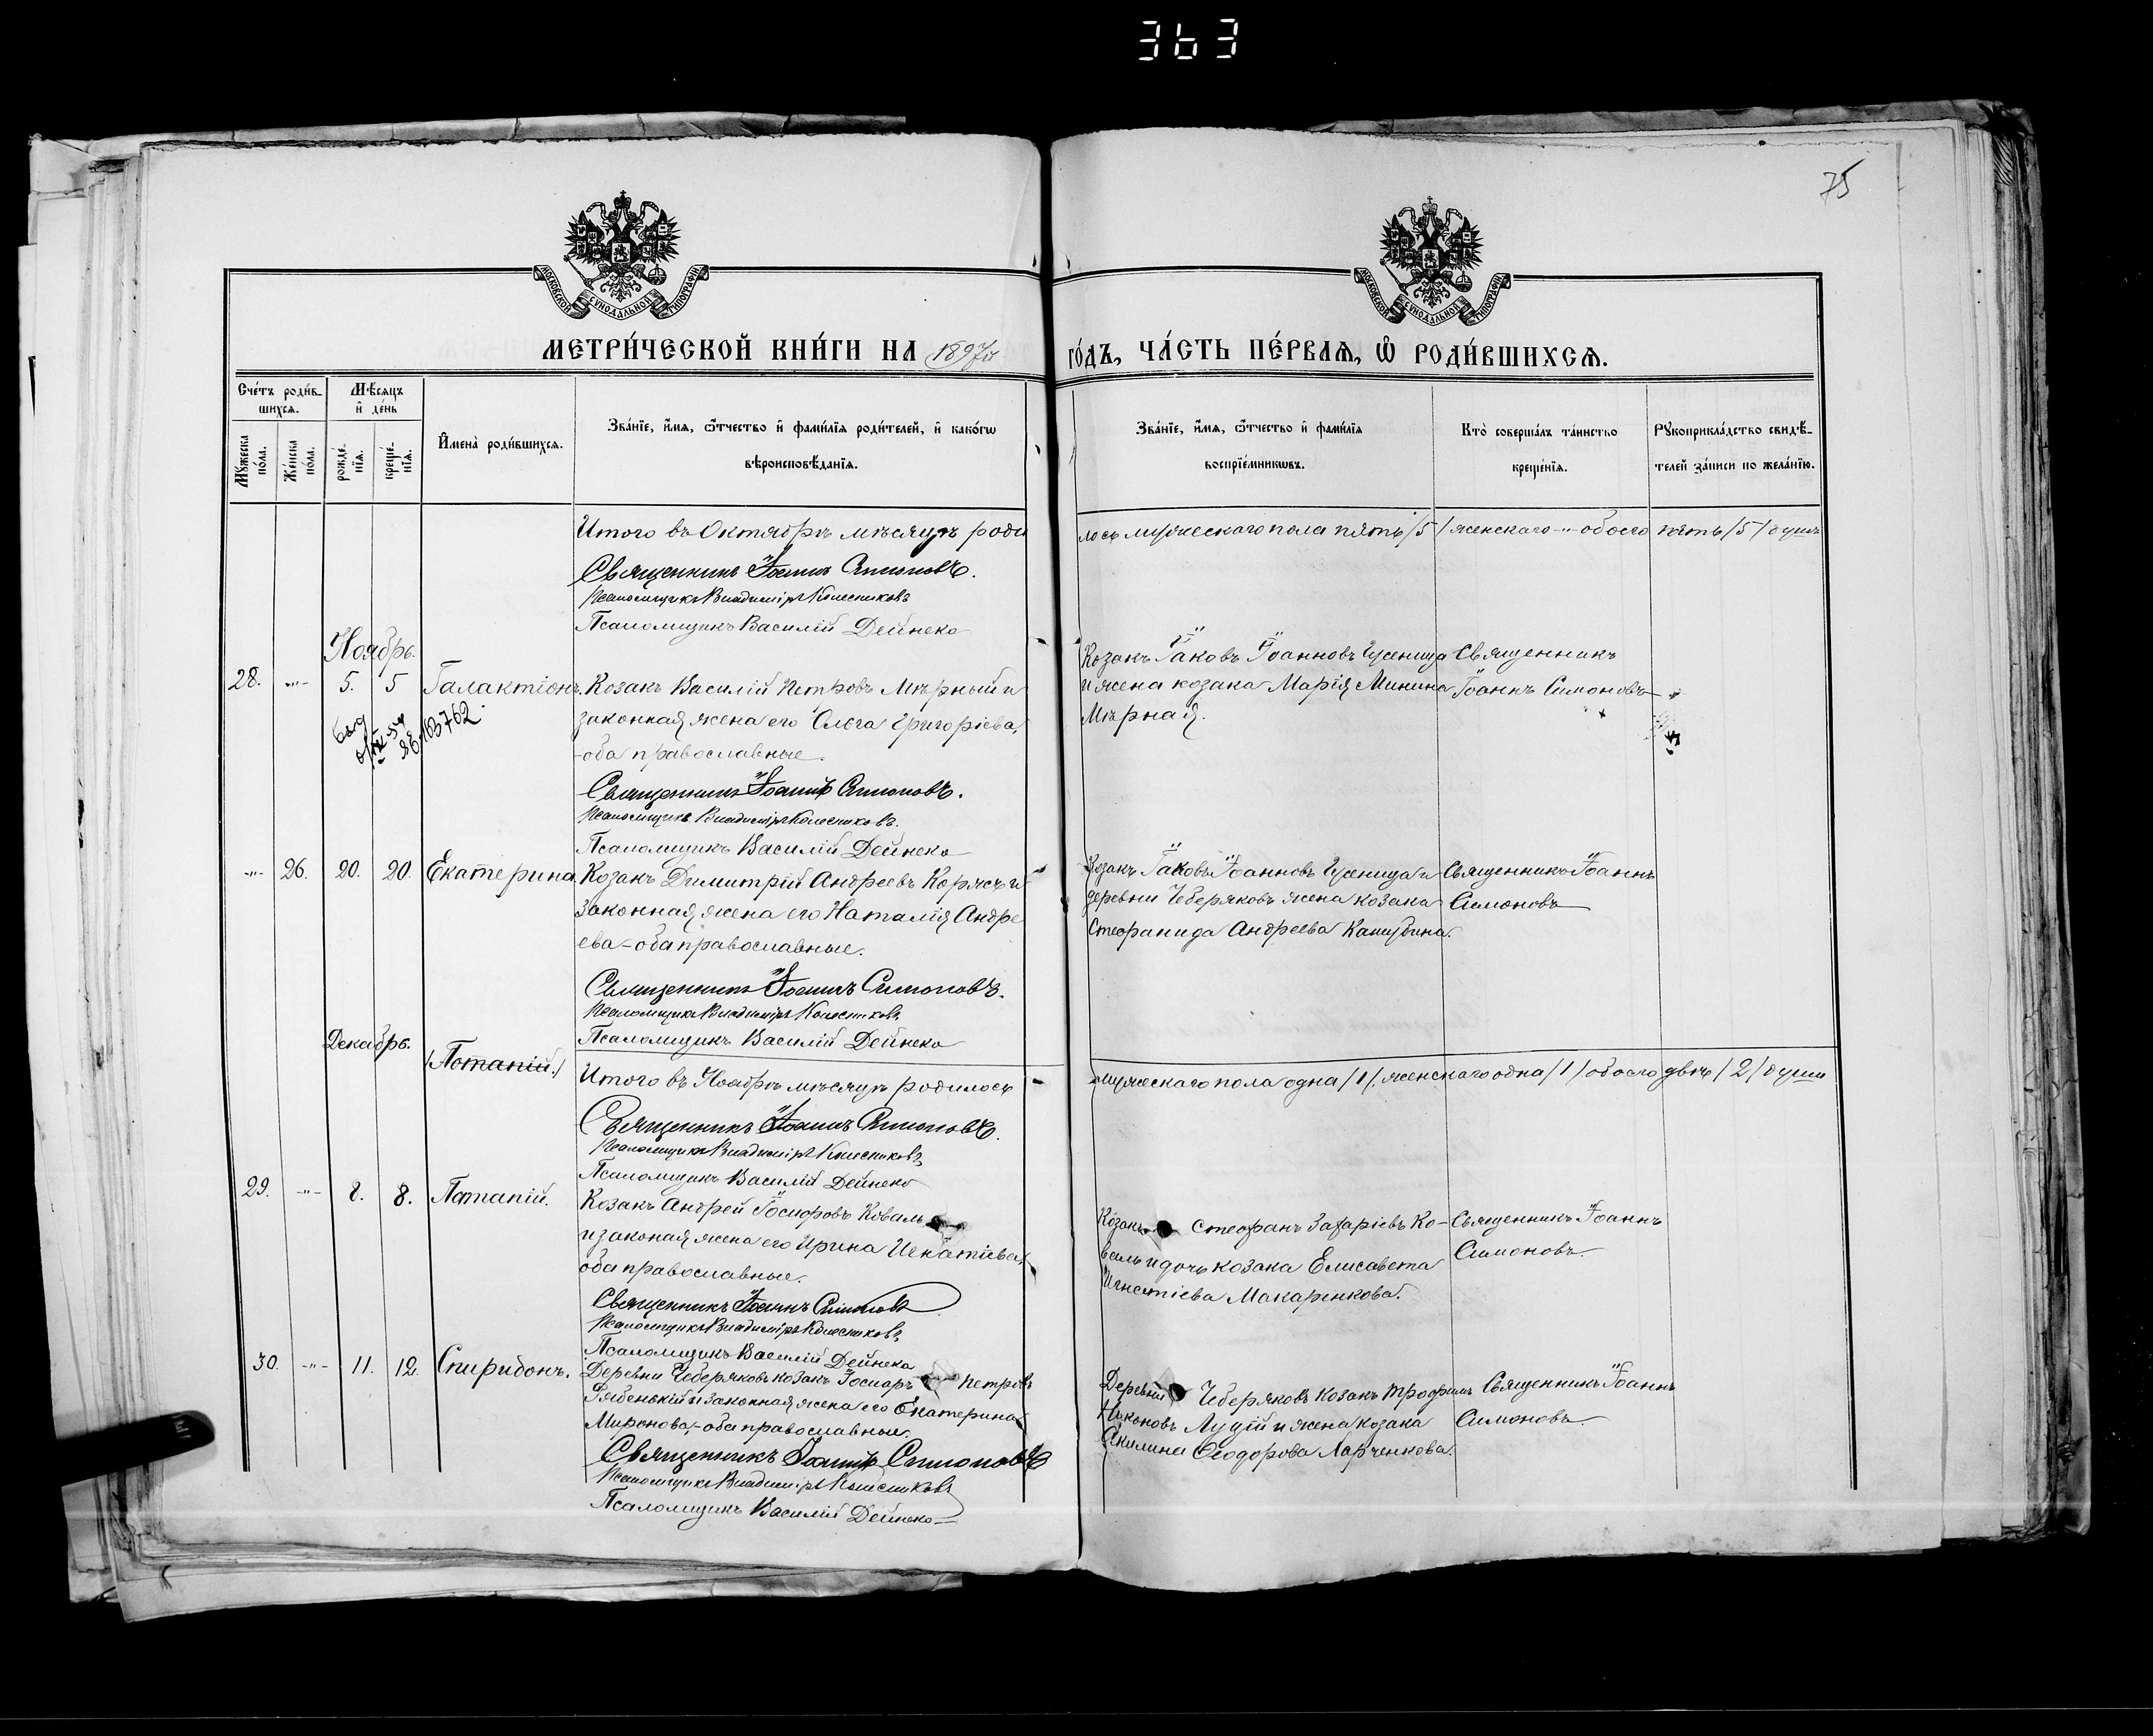 363
75
МОСКОВСКОЙ СѴНОДАЛЬНОЙ ТИПОГРАФІИ
МОСКОВСКОЙ СѴНОДАЛЬНОЙ ТИПОГРАФІИ
МЕТРИ́ЧЕСКОЙ КНИ́ГИ НА 1897й ГО́ДЪ, ЧА́СТЬ ПЕ́РВАЯ, Ѡ РОДИ́ВШИХСЯ.
Сче́тъ роди́в-
шихся.
Мѣ́сяцъ
и҆ де́нь
Мꙋ́жеска
по́ла.
Же́нска
по́ла.
рожде́-
нїѧ.
креще́-
нїѧ.
И҆мена̀ роди́вшихсѧ.
Зва́нїе, и҆́мѧ, ѻ҆́тчество и҆ фами́лїѧ роди́телей, и҆ како́гѡ
вѣроисповѣ́данїѧ.
Зва́нїе, и҆́мѧ, ѻ҆́тчество и҆ фами́лїѧ
воспрїе́мникѡвъ.
Кто̀ соверша́лъ та́инство
креще́нїѧ.
Рꙋкоприкла́дство свидѣ́-
телей за́писи по жела́нїю.
Итого въ Октябрѣ мѣсяцѣ роди
лось мужескаго пола пять /5/ женскаго -"- обоего пять /5/ душъ
Священникъ Іоаннъ Симоновъ.
Псаломщикъ Владиміръ Колесниковъ
Псаломщикъ Василій Дейнеко
Ноябрь.
28. -"- 5. 5 Галактіонъ. Козакъ Василій Петровъ Мѣрный и
законная жена его Ольга Григоріева,
-оба православные.
Козакъ Іаковъ Іоанновъ Гусеница
и жена козака Марія Минина
Мѣрная.
Священникъ
Іоаннъ Симоновъ
103762
Священникъ Іоаннъ Симоновъ.
Псаломщикъ Владиміръ Колесниковъ.
Псаломщикъ Василій Дейнеко
-"- 26. 20. 20. Екатерина. Козакъ Димитрій Андреевъ Коржъ и
законная жена его Наталія Андре
ева - оба православные.
Козакъ Іаковъ Іоанновъ Гусеница и
деревни Чеберяковъ жена козака
Стефанида Андреева
Священникъ Іоаннъ
Симоновъ
Священникъ Іоаннъ Симоновъ.
Псаломщикъ Владиміръ Колесниковъ.
Псаломщикъ Василій Дейнеко
Декабрь.
(Потапій.)
Итого въ Ноябрѣ мѣсяцѣ родилось
мужескаго пола одна /1/, женскаго одна /1/ обоего двѣ /2/ души
Священникъ Іоаннъ Симоновъ.
Псаломщикъ Владиміръ Колесниковъ
Псаломщикъ Василій Дейнеко
29. -"- 8. 8. Патапій. Козакъ Андрей Іосифовъ Коваль
и законая жена его Ирина Игнатіева,
оба православные.
Козакъ Стефанъ Захаріевъ Ко-
валь и дочь козака Елисавета
Игнатіева Макаренкова.
Священникъ Іоаннъ
Симоновъ
Священникъ Іоаннъ Симоновъ
Псаломщикъ Владиміръ Колесниковъ
Псаломщикъ Василій Дейнека
30. -"- 11. 12. Спиридонъ. Деревни Чеберяковъ козакъ Петровъ
Рябенькій и законная жена его Екатерина
Миронова, - оба православные.
Деревни Чеберяковъ козакъ Трофимъ
Никоновъ Луцій и жена козака
Акилина Ѳеодорова Харченкова.
Священникъ Іоаннъ
Симоновъ
Священникъ Іоаннъ Симоновъ
Псаломщикъ Владиміръ Колесниковъ
Псаломщикъ Василій Дейнеко